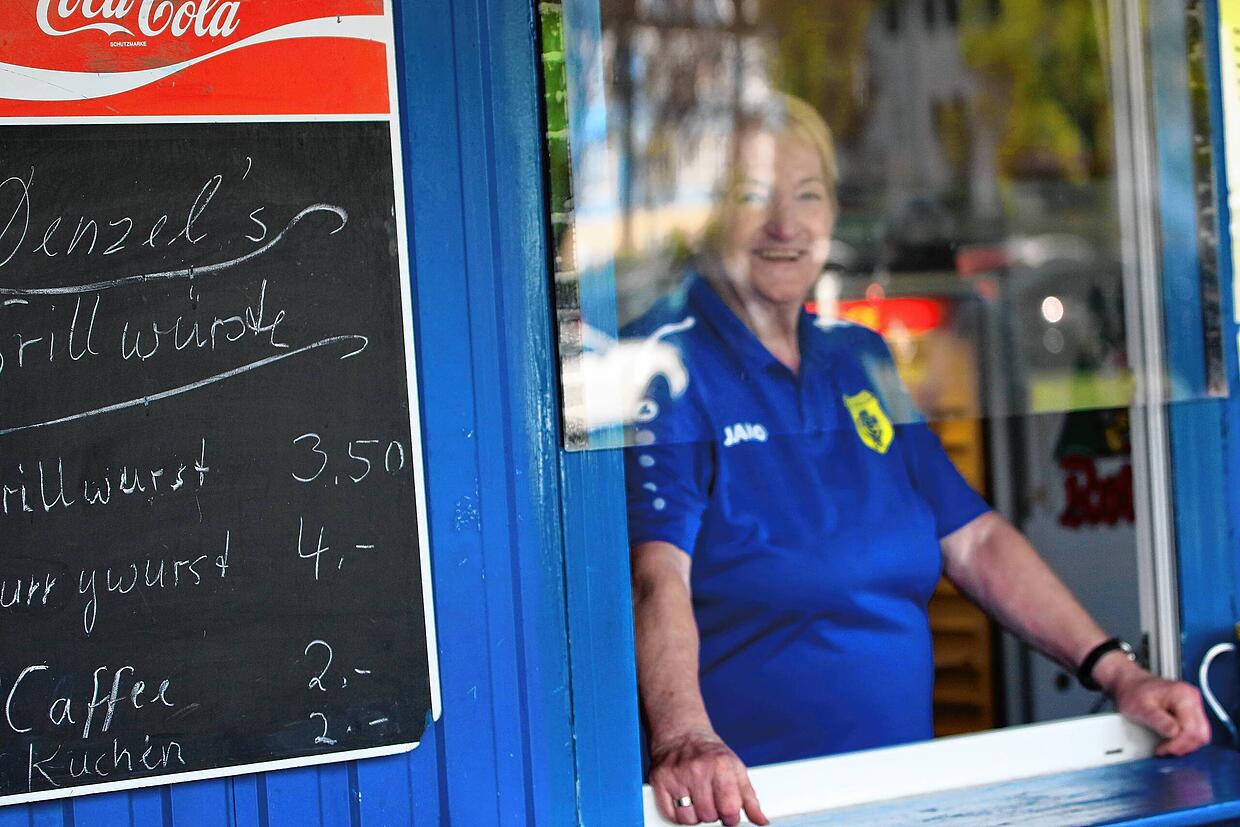 Coca-Cola
SCHUTZMARKE
Denzel's
Grillwürste
rillwurst 3,50
urrywurst 4,-
Caffee 2,-
Kuchen 2.-
JAKO